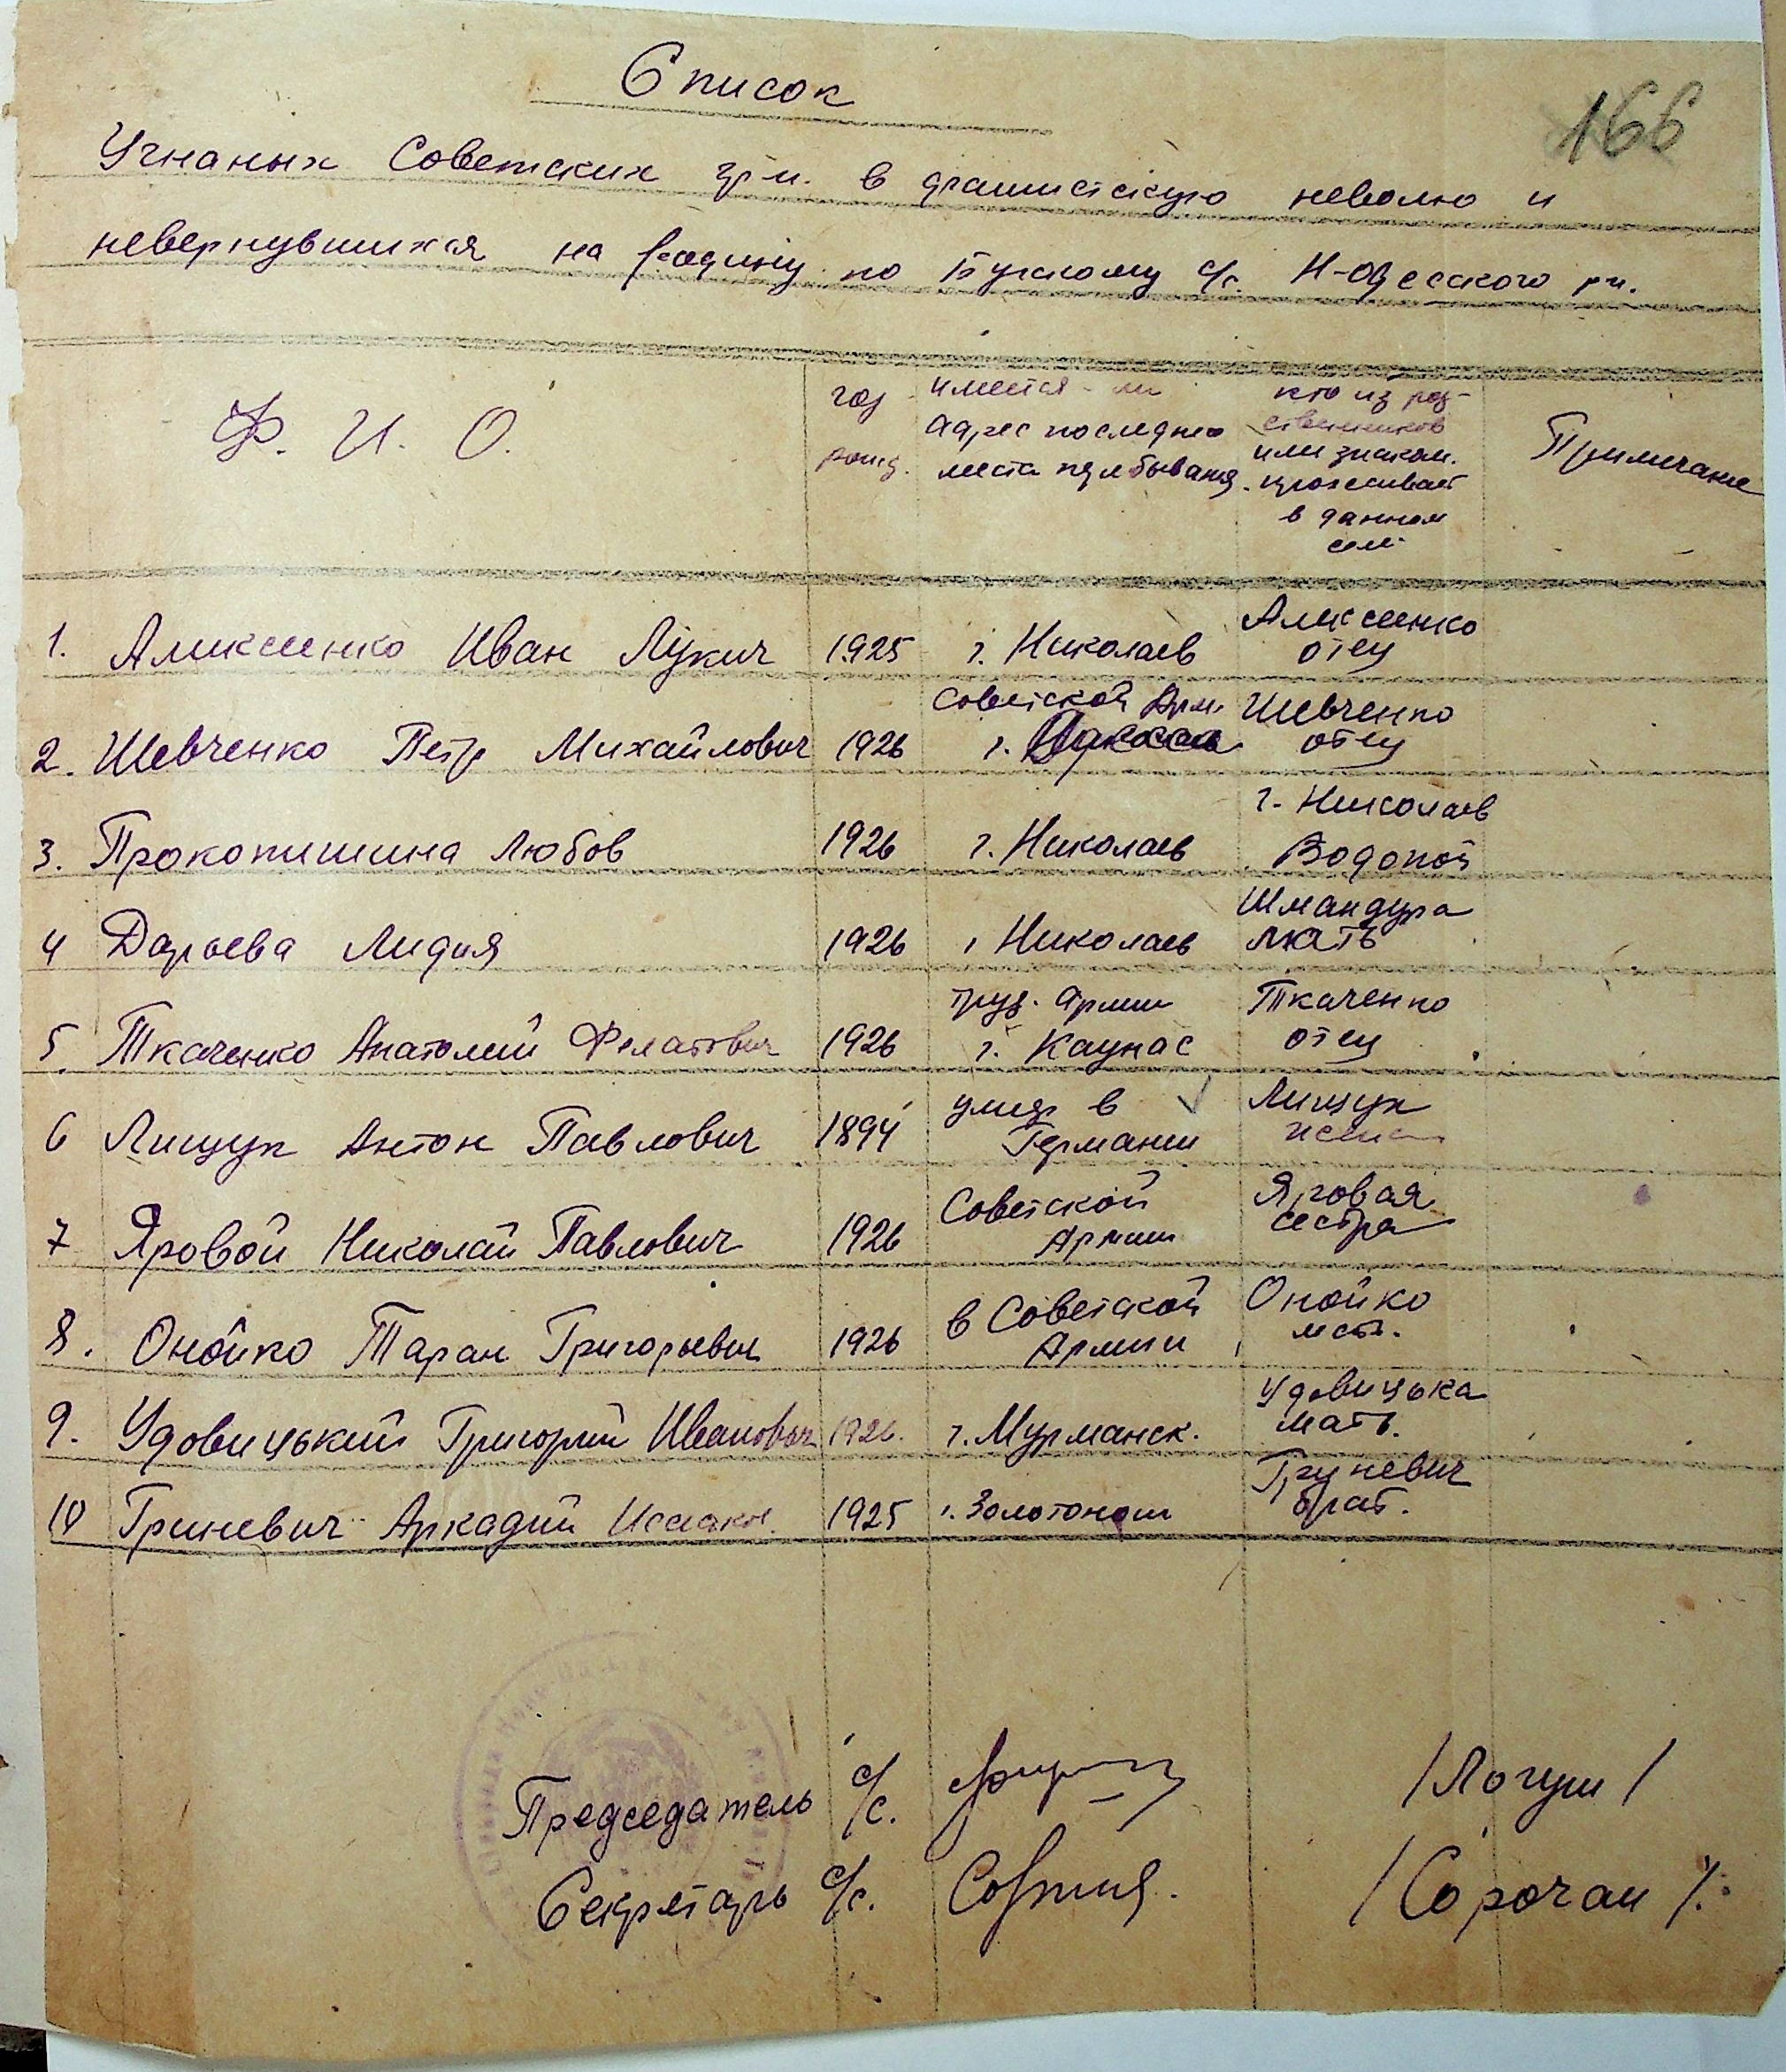 Список
166
Угнаных Советских гр-н. в фашистскую неволю и
невернувшихся на родину по Бугскому с/с. Н-Одесского р-н.
Ф. И. О.
год
рожд.
имеется-ли
адрес последнего
места пребывания
кто из род-
ственников
или знаком.
проживает
в данном
селе
Примечание
1. Аликсеенко Иван Лукич 1925 г. Николаев Аликсеенко
отец
2. Шевченко Петр Михайлович 1926 Советской Арм.
г. Шевченко
отец
3. Прокопишина Любов 1926 г. Николаев г. Николаев
Водопой
4 Дарьева Лидия 1926 г Николаев Шмандура
мать
5 Ткаченко Анатолий Филатович 1926 труд. Армии
г. Каунас Ткаченко
отец
6 Лищук Антон Павлович 1894 умер в
Германии Лищук
жена
7 Яровой Николай Павлович 1926 Советской
Армии Яровая
сестра
8. Онойко Таран Григорьевич 1926 в Советской
Армии Онойко
мать.
9. Удовицький Григорий Иванович 1926. г. Мурманск. Удовицька
мать.
10 Гриневич Аркадий 1925 г. Золотонош Груневич
брат.
Председатель с/с. /Логуш/
Секретарь с/с. /Сорочан/.